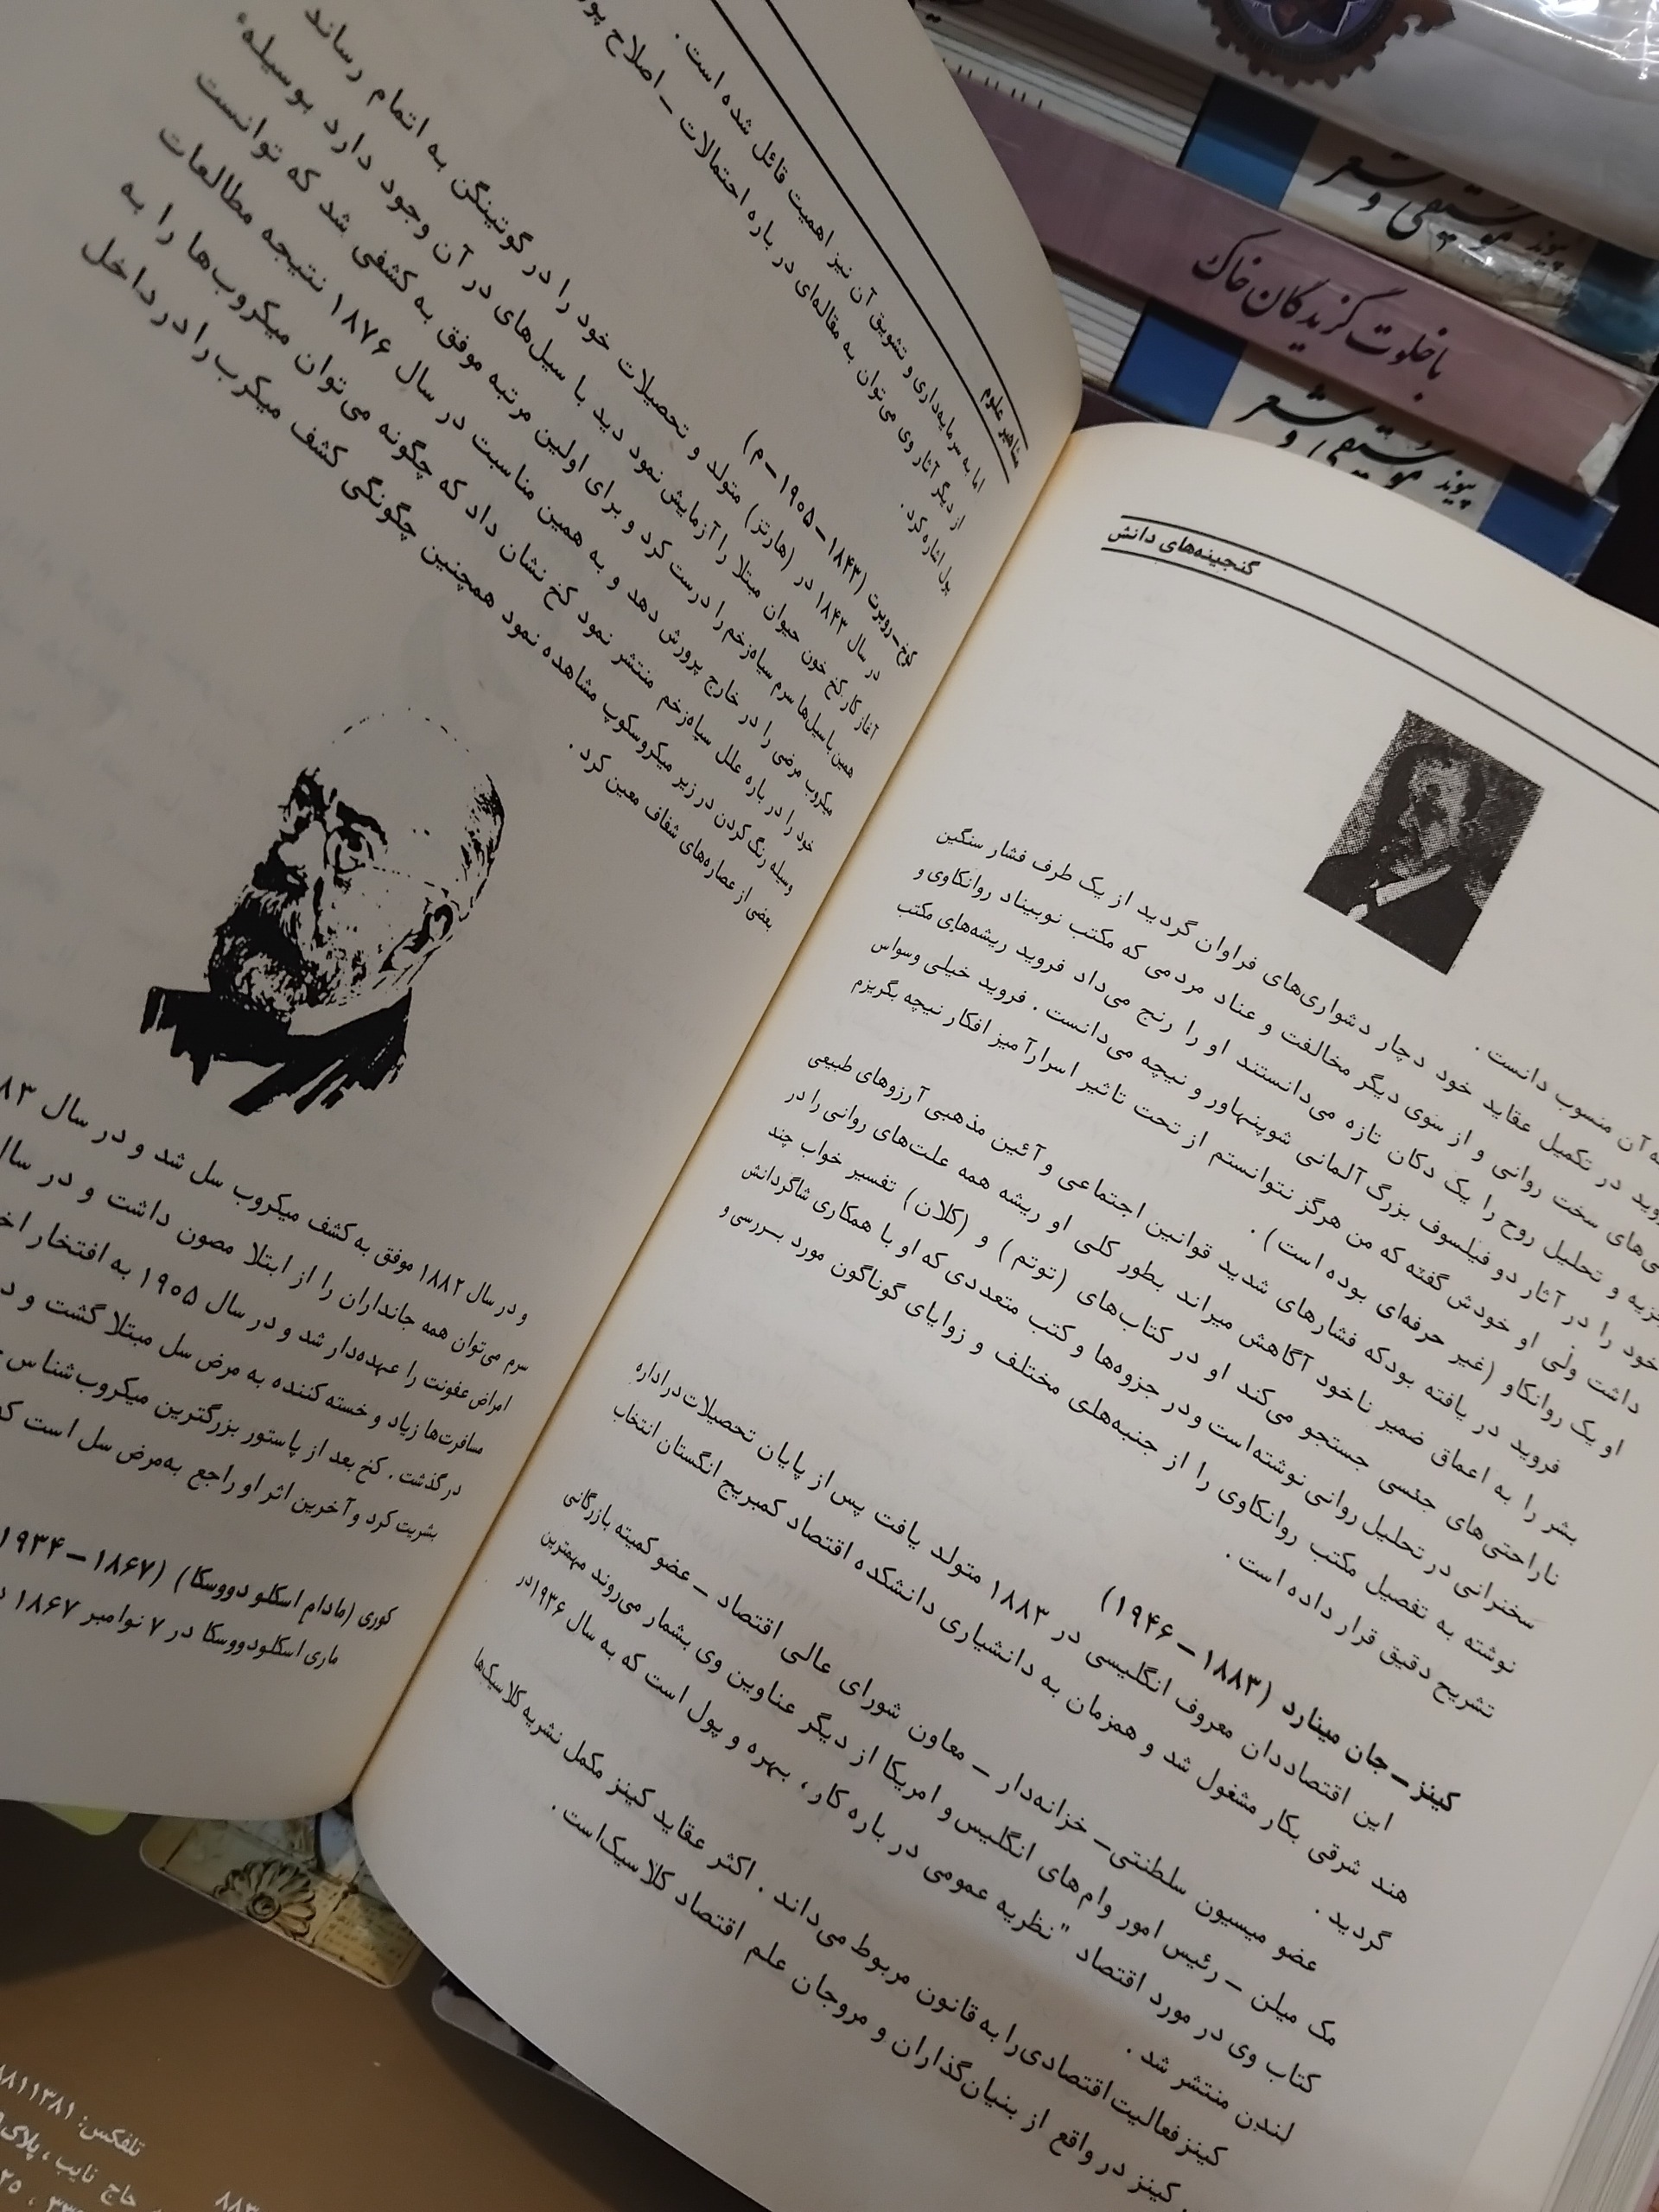 گنجینه‌های دانش
به آن منسوب دانست.
فروید در تکمیل عقاید خود دچار دشواری‌های فراوان گردید از یک طرف فشار سنگین
های سخت روانی و از سوی دیگر مخالفت و عناد مردمی که مکتب نوبیناد روانکاوی و
تجزیه و تحلیل روح را یک دکان تازه می‌دانستند او را رنج می‌داد فروید ریشه‌های مکتب
خود را در آثار دو فیلسوف بزرگ آلمانی شوپنهاور و نیچه می‌دانست. فروید خیلی وسواس
داشت ولی او خودش گفته که من هرگز نتوانستم از تحت تاثیر اسرارآمیز افکار نیچه بگریزم
او یک روانکاو (غیر حرفه‌ای بوده است).
فروید در یافته بود که فشارهای شدید قوانین اجتماعی و آئین مذهبی آرزوهای طبیعی
بشر را به اعماق ضمیر ناخود آگاهش میراند بطور کلی او ریشه همه علت‌های روانی را در
ناراحتی‌های جنسی جستجو می‌کند او در کتاب‌های (توتم) و (کلان) تفسیر خواب چند
سخنرانی در تحلیل روانی نوشته است و در جزوه‌ها و کتب متعددی که او با همکاری شاگردانش
نوشته به تفصیل مکتب روانکاوی را از جنبه‌های مختلف و زوایای گوناگون مورد بررسی و
تشریح دقیق قرار داده است.
کینز – جان مینارد (۱۸۸۳ – ۱۹۴۶)
این اقتصاددان معروف انگلیسی در ۱۸۸۳ متولد یافت پس از پایان تحصیلات در اداره
هند شرقی بکار مشغول شد و همزمان به دانشیاری دانشکده اقتصاد کمبریج انگستان انتخاب
گردید.
عضو میسیون سلطنتی – خزانه‌دار – معاون شورای عالی اقتصاد – عضو کمیته بازرگانی
مک میلن – رئیس امور وام‌های انگلیس و امریکا از دیگر عناوین وی بشمار می‌روند مهمترین
کتاب وی در مورد اقتصاد "نظریه عمومی در باره کار، بهره و پول است که به سال ۱۹۳۶ در
لندن منتشر شد.
کینز فعالیت اقتصادی را به قانون مربوط می‌داند. اکثر عقاید کینز مکمل نشریه کلاسیک‌ها
. کینز در واقع از بنیان‌گذاران و مروجان علم اقتصاد کلاسیک است.
مشاهیر علوم
اما به سرمایه‌داری و تشویق آن نیز اهمیت قائل شده است.
از دیگر آثار وی می‌توان به مقاله‌ای در باره احتمالات – اصلاح
پول اشاره کرد.
کخ – روبرت (۱۸۴۳ – ۱۹۰۵ – م)
در سال ۱۸۴۳ در (هارتز) متولد و تحصیلات خود را در گوتینگن به اتمام رساند
آغاز کار کخ خون حیوان مبتلا را آزمایش نمود دید با سیل‌های در آن وجود دارد بوسیله،
همین باسیل‌ها سرم سیاه‌زخم را درست کرد و برای اولین مرتبه موفق به کشفی شد که توانست
میکروب مرضی را در خارج پرورش دهد و به همین مناسبت در سال ۱۸۷۶ نتیجه مطالعات
خود را در باره علل سیاه‌زخم منتشر نمود کخ نشان داد که چگونه می‌توان میکروب‌ها را به
وسیله رنگ کردن در زیر میکروسکوپ مشاهده نمود همچنین چگونگی کشف میکرب را در داخل
بعضی از عصاره‌های شفاف معین کرد.
و در سال ۱۸۸۲ موفق به کشف میکروب سل شد و در سال
سرم می‌توان همه جانداران را از ابتلا مصون داشت و در سال
امراض عفونت را عهده‌دار شد و در سال ۱۹۰۵ به افتخار
مسافرت‌ها زیاد و خسته کننده به مرض سل مبتلا گشت و
درگذشت. کخ بعد از پاستور بزرگترین میکروب‌شناس
بشریت کرد و آخرین اثر او راجع به‌مرض سل است
کوری (مادام اسکلو دووسکا) (۱۸۶۷ – ۱۹۳۴
ماری اسکلودووسکا در ۷ نوامبر ۱۸۶۷
پیوند موسیقی و شعر
با خلوت گزیدگان خاک
پیوند موسیقی و شعر
تلفکس:
حاج نایب، پلاک